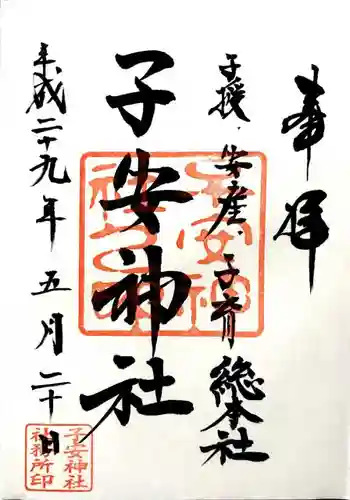 奉拝
子授・安産・子育 総本社
子安神社
平成二十九年 五月 二十日
子安神社
社務所印